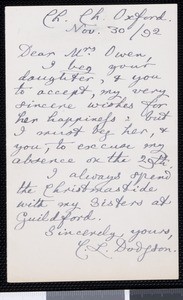 Ch. Ch. Oxford.
Nov. 30/92
Dear Mrs Owen,
I beg your
daughter, & you
to accept my very
sincere wishes for
her happiness: but
I must beg her, &
you, to excuse my
absence on the 29th.
I always spend
the Christmastide
with my Sisters at
Guildford.
Sincerely yours,
C. L. Dodgson.